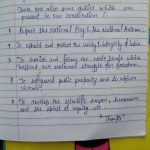 There are also some duties which are
present in our constitution :
Respect the National Flag & the National Anthem.
To uphold and protect the unity & integrity of India
To cherish and follow the noble ideals which
inspired our national struggle for freedom.
To safeguard public property and to abjure
violence.
To develop the scientific temper, humanism
and the spirit of inquiry etc.
Thanks